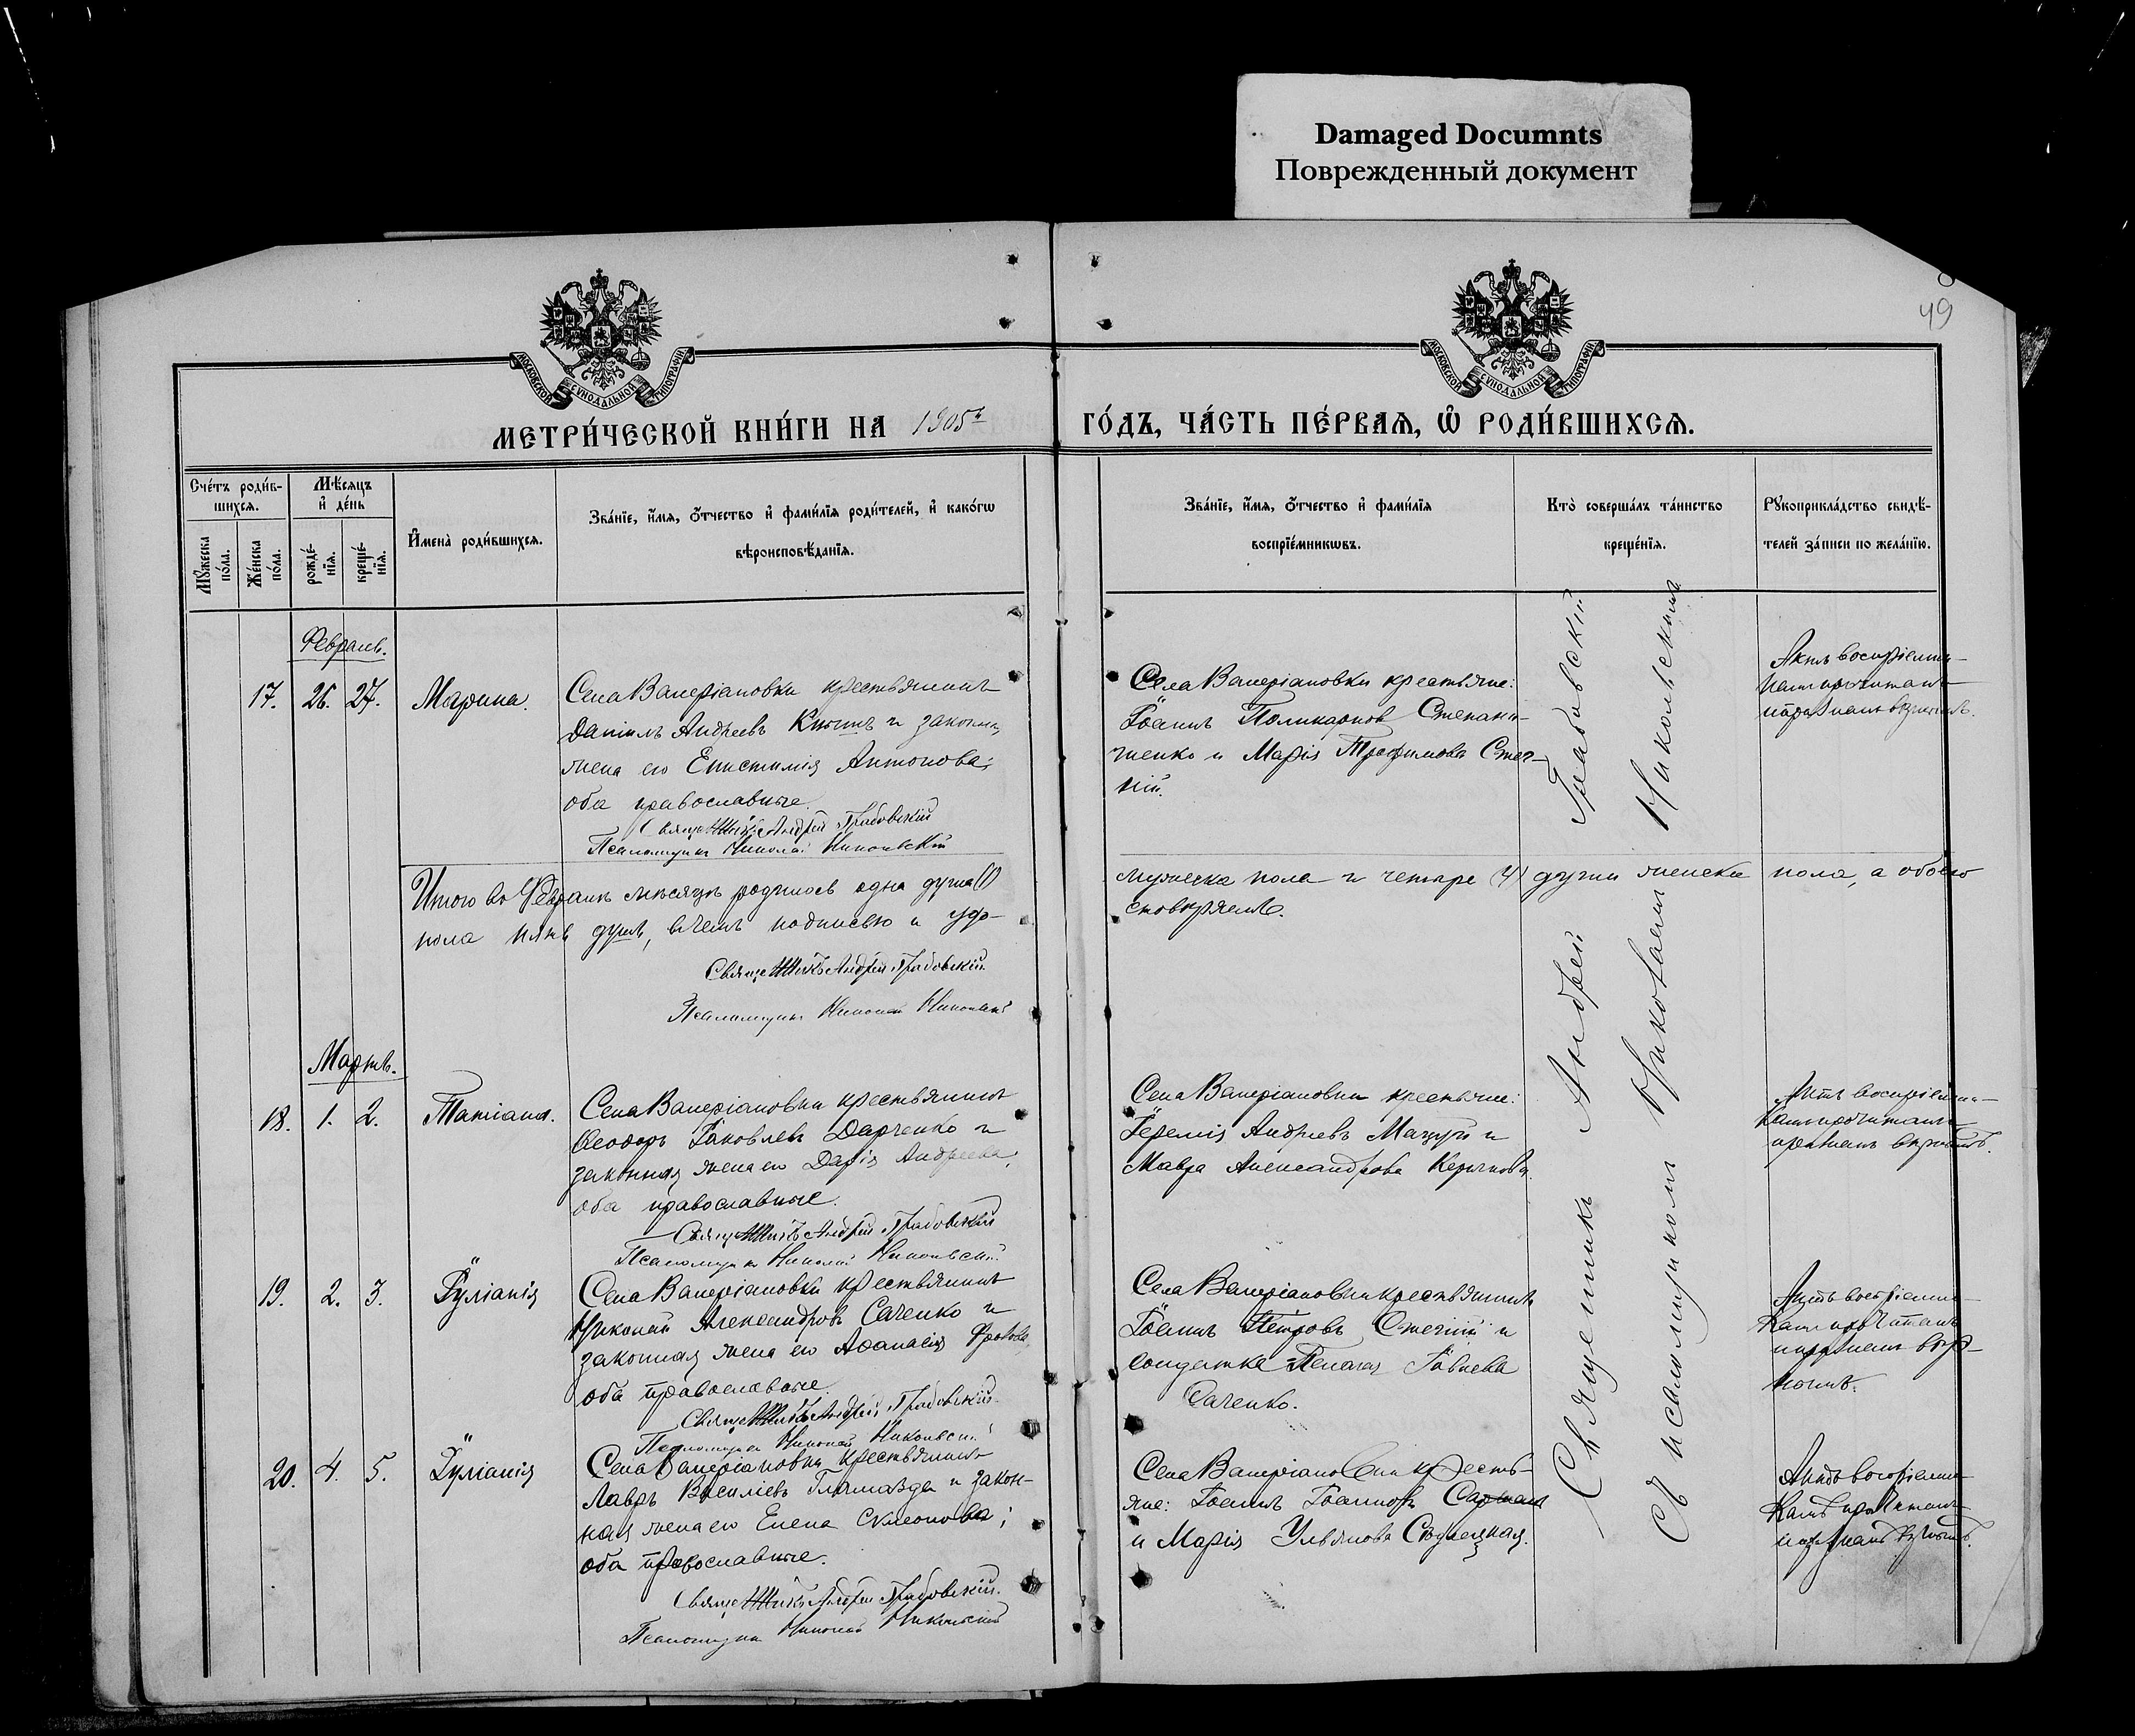 Damaged Documnts
Поврежденный документ
49
МОСКОВСКОЙ СУНОДАЛЬНОЙ ТИПОГРАФІИ
МОСКОВСКОЙ СУНОДАЛЬНОЙ ТИПОГРАФІИ
МЕТРИ́ЧЕСКОЙ КНИ́ГИ НА 1905й ГО́ДЪ, ЧА́СТЬ ПЕ́РВАѦ, Ѡ҆ РОДИ́ВШИХСѦ.
Сче́тъ роди́в-
шихсѧ.
Мꙋ́жеска по́ла.
Же́нска по́ла.
Мѣ́сѧцъ
и҆ де́нь
рожде́-
нїѧ.
креще́-
нїѧ.
И҆мена̀ роди́вшихсѧ.
Зва́нїе, и҆́мѧ, ѻ҆́тчество и҆ фами́лїѧ роди́телей, и҆ како́гѡ
вѣроисповѣ́данїѧ.
Зва́нїе, и҆́мѧ, ѻ҆́тчество и҆ фами́лїѧ
воспрїе́мникѡвъ.
Кто̀ соверша́лъ та́инство
креще́нїѧ.
Рꙋкоприкла́дство свидѣ́-
телей за́писи по жела́нїю.
Февраль.
17. 26. 27. Марина.
Села Валеріановки крестьянинъ
Даніилъ Андреевъ и законн.
жена его Епистимія Антонова;
оба православные.
Священникъ Андрей Грабовскій
Псаломщикъ Николай Никольскій
Села Валеріановки крестьяне:
Іоаннъ Поликарповъ Степани-
ченко и Марія Трофимова
Актъ воспріемни-
камъ прочитанъ
Итого въ Февралѣ мѣсяцѣ родилось одна душа (1) мужеска пола и четыре (4) души женска пола, а обоего
пола пять душъ, въ чемъ подписью и удо-
стовѣряемъ.
Священникъ Андрей Грабовскій
Псаломщикъ Николай Никольскій
Мартъ.
18. 1. 2. Татіана.
Села Валеріановки крестьянинъ
Ѳеодоръ Іаковлевъ Дарченко и
законная жена его Дарія Андреева,
оба православные.
Священникъ Андрей Грабовскій
Псаломщикъ Николай Никольскій
Села Валеріановки крестьяне:
Іеремія Андреевъ и
Мавра Александрова
Актъ воспріемни-
камъ прочитанъ
19. 2. 3. Іуліанія
Села Валеріановки крестьянинъ
Николай Александровъ Саченко и
законная жена его Аѳанасія
оба православные.
Священникъ Андрей Грабовскій
Псаломщикъ Николай Никольскій
Села Валеріановки крестьянинъ
Іоаннъ Петровъ и
солдатка Пелагія
Саченко.
Актъ воспріемни-
камъ прочитанъ
20. 4. 5. Іуліанія
Села Валеріановки крестьянинъ
Лавръ Василіевъ и закон-
ная жена его Елена Симеонова;
оба православные.
Священникъ Андрей Грабовскій
Псаломщикъ Николай Никольскій
Села Валеріановки кресть-
яне: Іоаннъ Іоанновъ
и Марія Ульянова
Актъ воспріемни-
камъ прочитанъ
Священникъ Андрей Грабовскій
Съ псаломщикомъ Николаемъ Никольскимъ